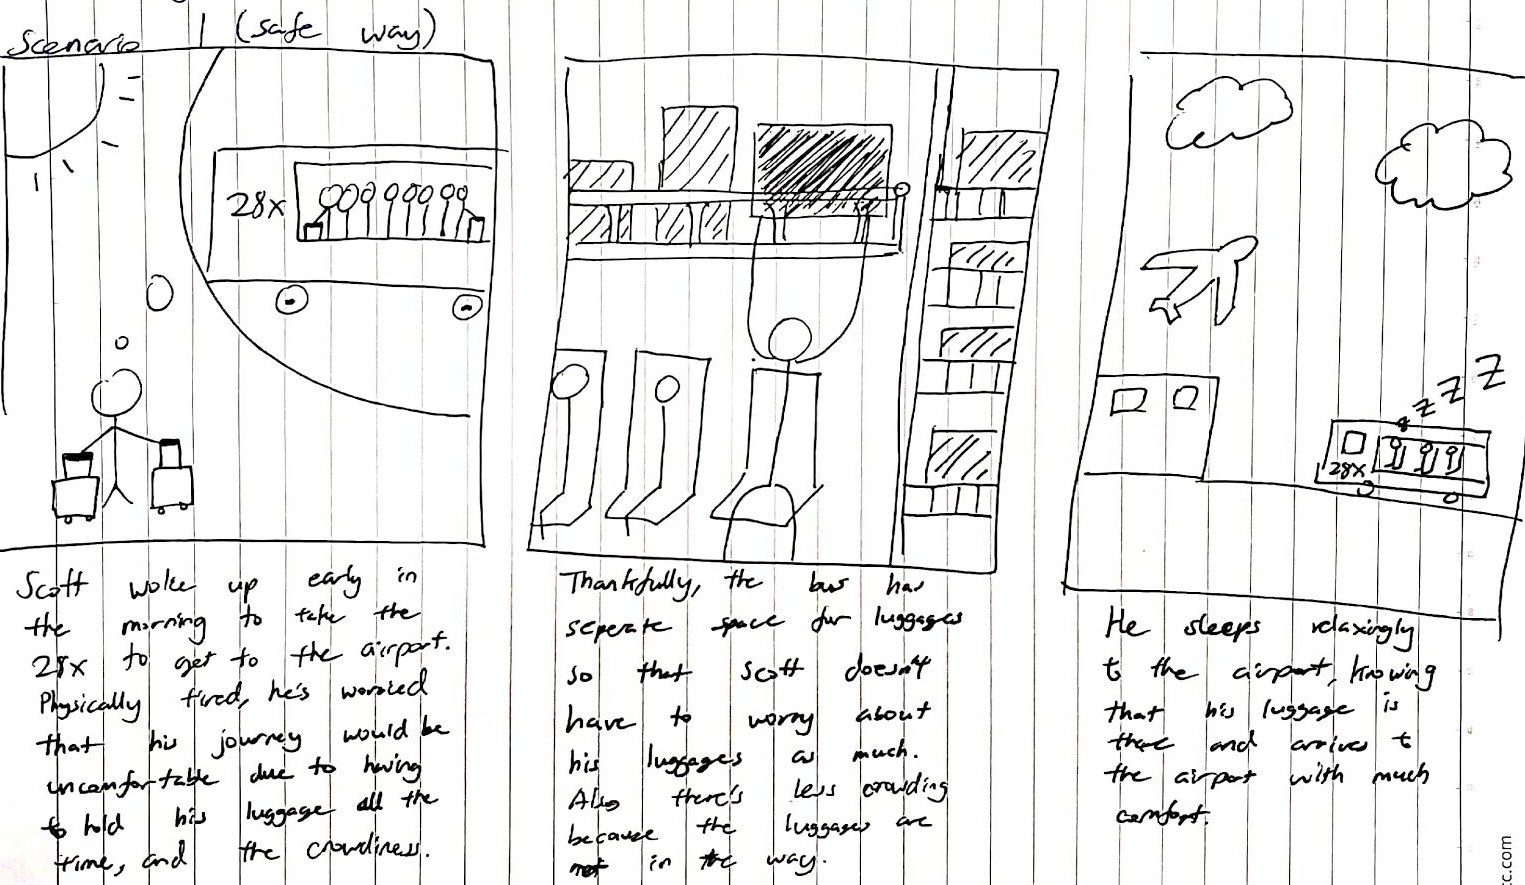 Scenario 1 (safe way)
28x
Scott woke up early in
the morning to take the
28x to get to the airport.
Physically tired, he's worried
that his journey would be
uncomfortable due to having
to hold his luggage all the
time, and the crowdiness.
Thankfully, the bus has
seperate space for luggages
so that Scott doesn't
have to worry about
his luggages as much.
Also there's less crowding
because the luggages are
not in the way.
z z z Z
28x
He sleeps relaxingly
to the airport, knowing
that his luggage is
there and arrives to
the airport with much
comfort.
cc.com